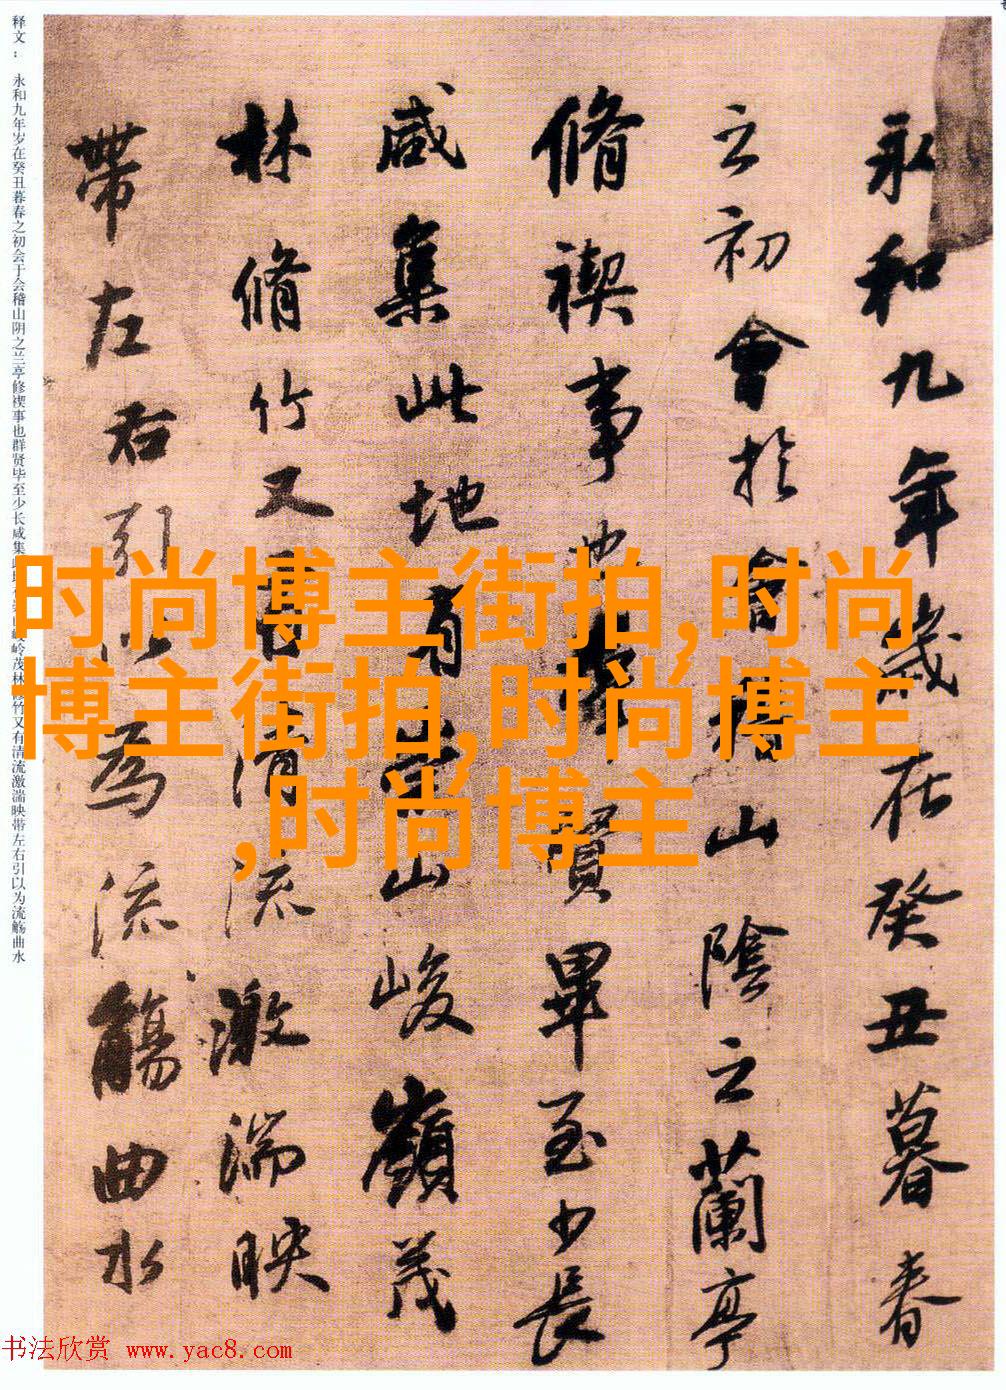 永和九年歲在癸丑暮春
之初會於會稽山陰之蘭亭
脩禊事也羣賢畢至少長
咸集此地有崇山峻嶺茂
林脩竹又有清流激湍映
帶左右引以為流觴曲水
释文：永和九年岁在癸丑暮春之初会于会稽山阴之兰亭修禊事也群贤毕至少长咸集
岭茂林修竹又有清流激湍映带左右引以为流觞曲水
时尚博主街拍,时尚
博主街拍,时尚博主
,时尚博主
书法欣赏 www.yac8.com